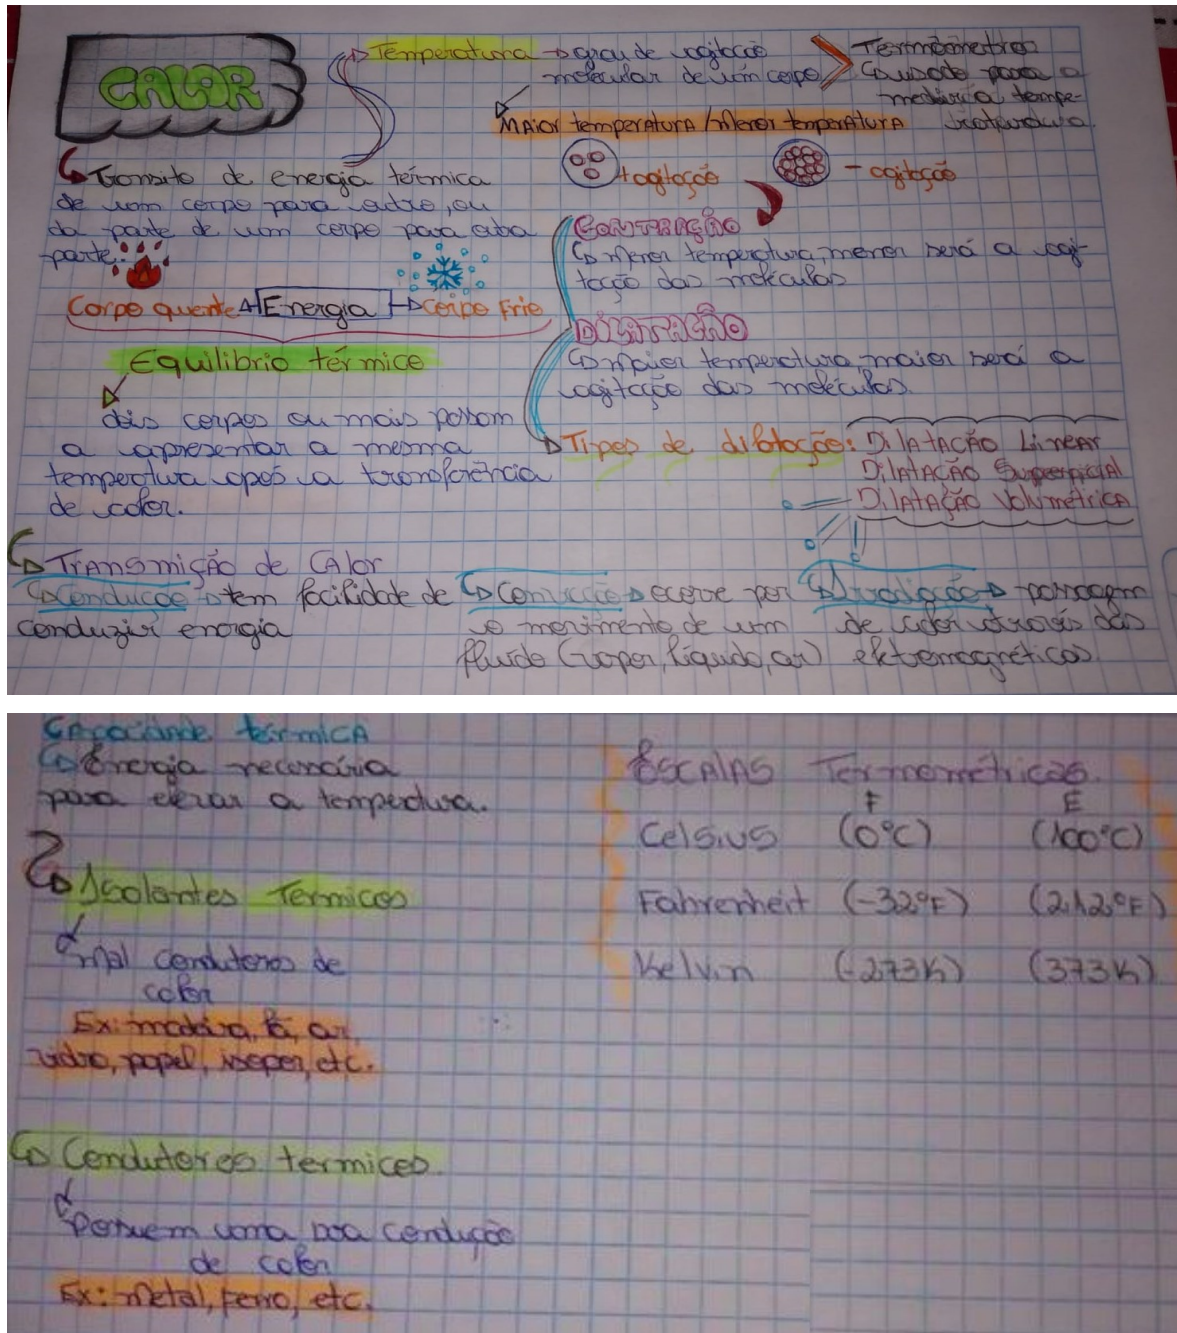 CALOR
Temperatura → grau de agitação
molecular de um corpo
Termômetros
usado para a
medir a tempe-
Maior temperatura / Menor temperatura
+ agitação
- agitação
Transito de energia térmica
de um corpo para outro, ou
da parte de um corpo para outra
parte.
Corpo quente Energia Corpo Frio
Equilibrio térmico
dois corpos ou mais possam
a apresentar a mesma
temperatura após a transferência
de calor.
CONTRAÇÃO
Menor temperatura, menor será a agi-
tação das moléculas
DILATAÇÃO
Maior temperatura, maior será a
agitação das moléculas.
Tipos de dilatação: Dilatação Linear
Dilatação Superficial
Dilatação Volumétrica
Transmição de Calor
Condução → tem facilidade de
conduzir energia
Convecção → ocorre por
o movimento de um
fluído (vapor, líquido, ar)
Irradiação → passagem
de calor através das
eletromagnéticas.
Capacidade térmica
Energia necessária
para elevar a temperatura.
Isolantes Termicos
Mal condutores de
calor
Ex: madeira, lã, ar,
vidro, papel, isopor, etc.
Condutores termicos
Possuem uma boa condução
de calor
Ex: Metal, Ferro, etc.
Escalas Termométricas.
F E
Celsius (0°C) (100°C)
Fahrenheit (-32°F) (212°F)
Kelvin (-273K) (373K)